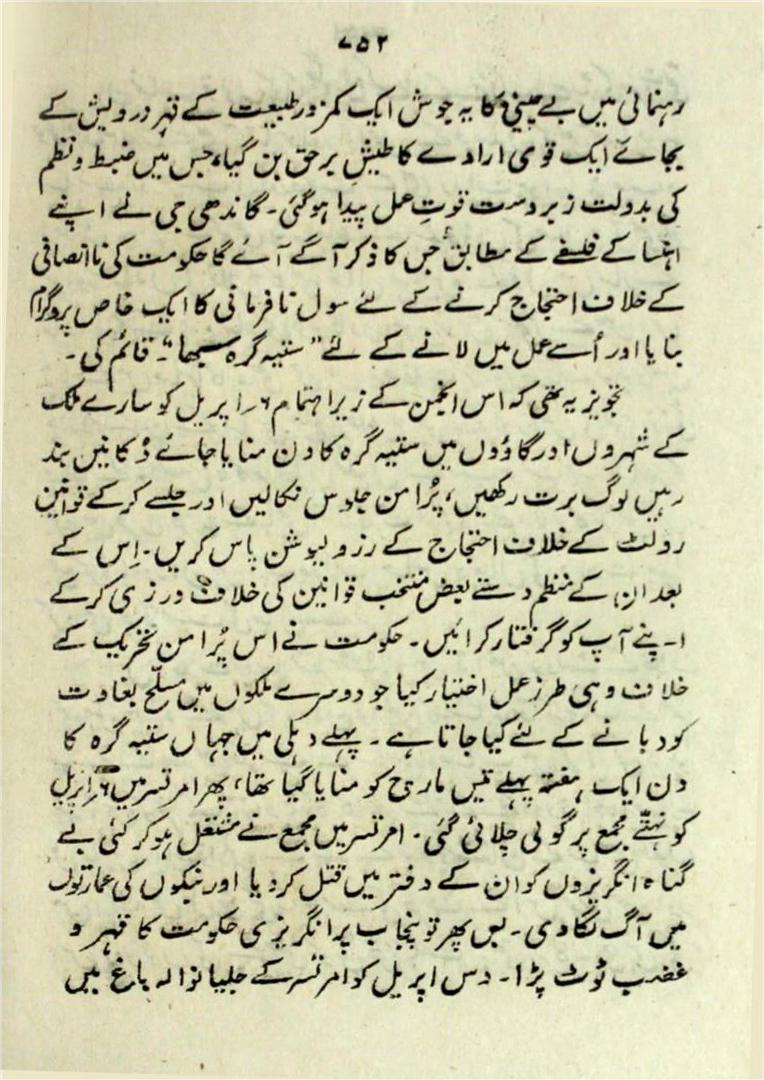 ۷۵۲
رہنمائی میں بے چینی کا یہ جوش ایک کمزور طبیعت کے قہر درویش کے
بجائے ایک قوی ارادے کا طیش برحق بن گیا، جس میں ضبط و نظم
کی بدولت زبردست قوتِ عمل پیدا ہوگئی۔ گاندھی جی نے اپنے
اہنسا کے فلسفے کے مطابق جس کا ذکر آگے آئے گا حکومت کی ناانصافی
کے خلاف احتجاج کرنے کے لئے سول نافرمانی کا ایک خاص پروگرام
بنایا اور اُسے عمل میں لانے کے لئے "ستیہ گرہ سبھا" قائم کی۔
تجویز یہ تھی کہ اس انجمن کے زیر اہتمام ۶ر اپریل کو سارے ملک
کے شہروں اور گاؤوں میں ستیہ گرہ کا دن منایا جائے دُکانیں بند
رہیں لوگ برت رکھیں، پُرامن جلوس نکالیں اور جلسے کرکے قوانین
رولٹ کے خلاف احتجاج کے رزولیوشن پاس کریں۔ اِس کے
بعد ان کے منظم دستے بعض منتخب قوانین کی خلاف ورزی کرکے
اپنے آپ کو گرفتار کرائیں۔ حکومت نے اس پُرامن تحریک کے
خلاف وہی طرز عمل اختیار کیا جو دوسرے ملکوں میں مسلّح بغاوت
کو دبانے کے لئے کیا جاتا ہے۔ پہلے دہلی میں جہاں ستیہ گرہ کا
دن ایک ہفتہ پہلے تیس مارچ کو منایا گیا تھا، پھر امرتسر میں ۶ر اپریل
کو نہتّے مجمع پر گولی چلائی گئی۔ امرتسر میں مجمع نے مشتعل ہوکر کئی بے
گناہ انگریزوں کو ان کے دفتر میں قتل کردیا اور بنکوں کی عمارتوں
میں آگ لگادی۔ بس پھر تو پنجاب پر انگریزی حکومت کا قہر و
غضب ٹوٹ پڑا۔ دس اپریل کو امرتسر کے جلیانوالہ باغ میں